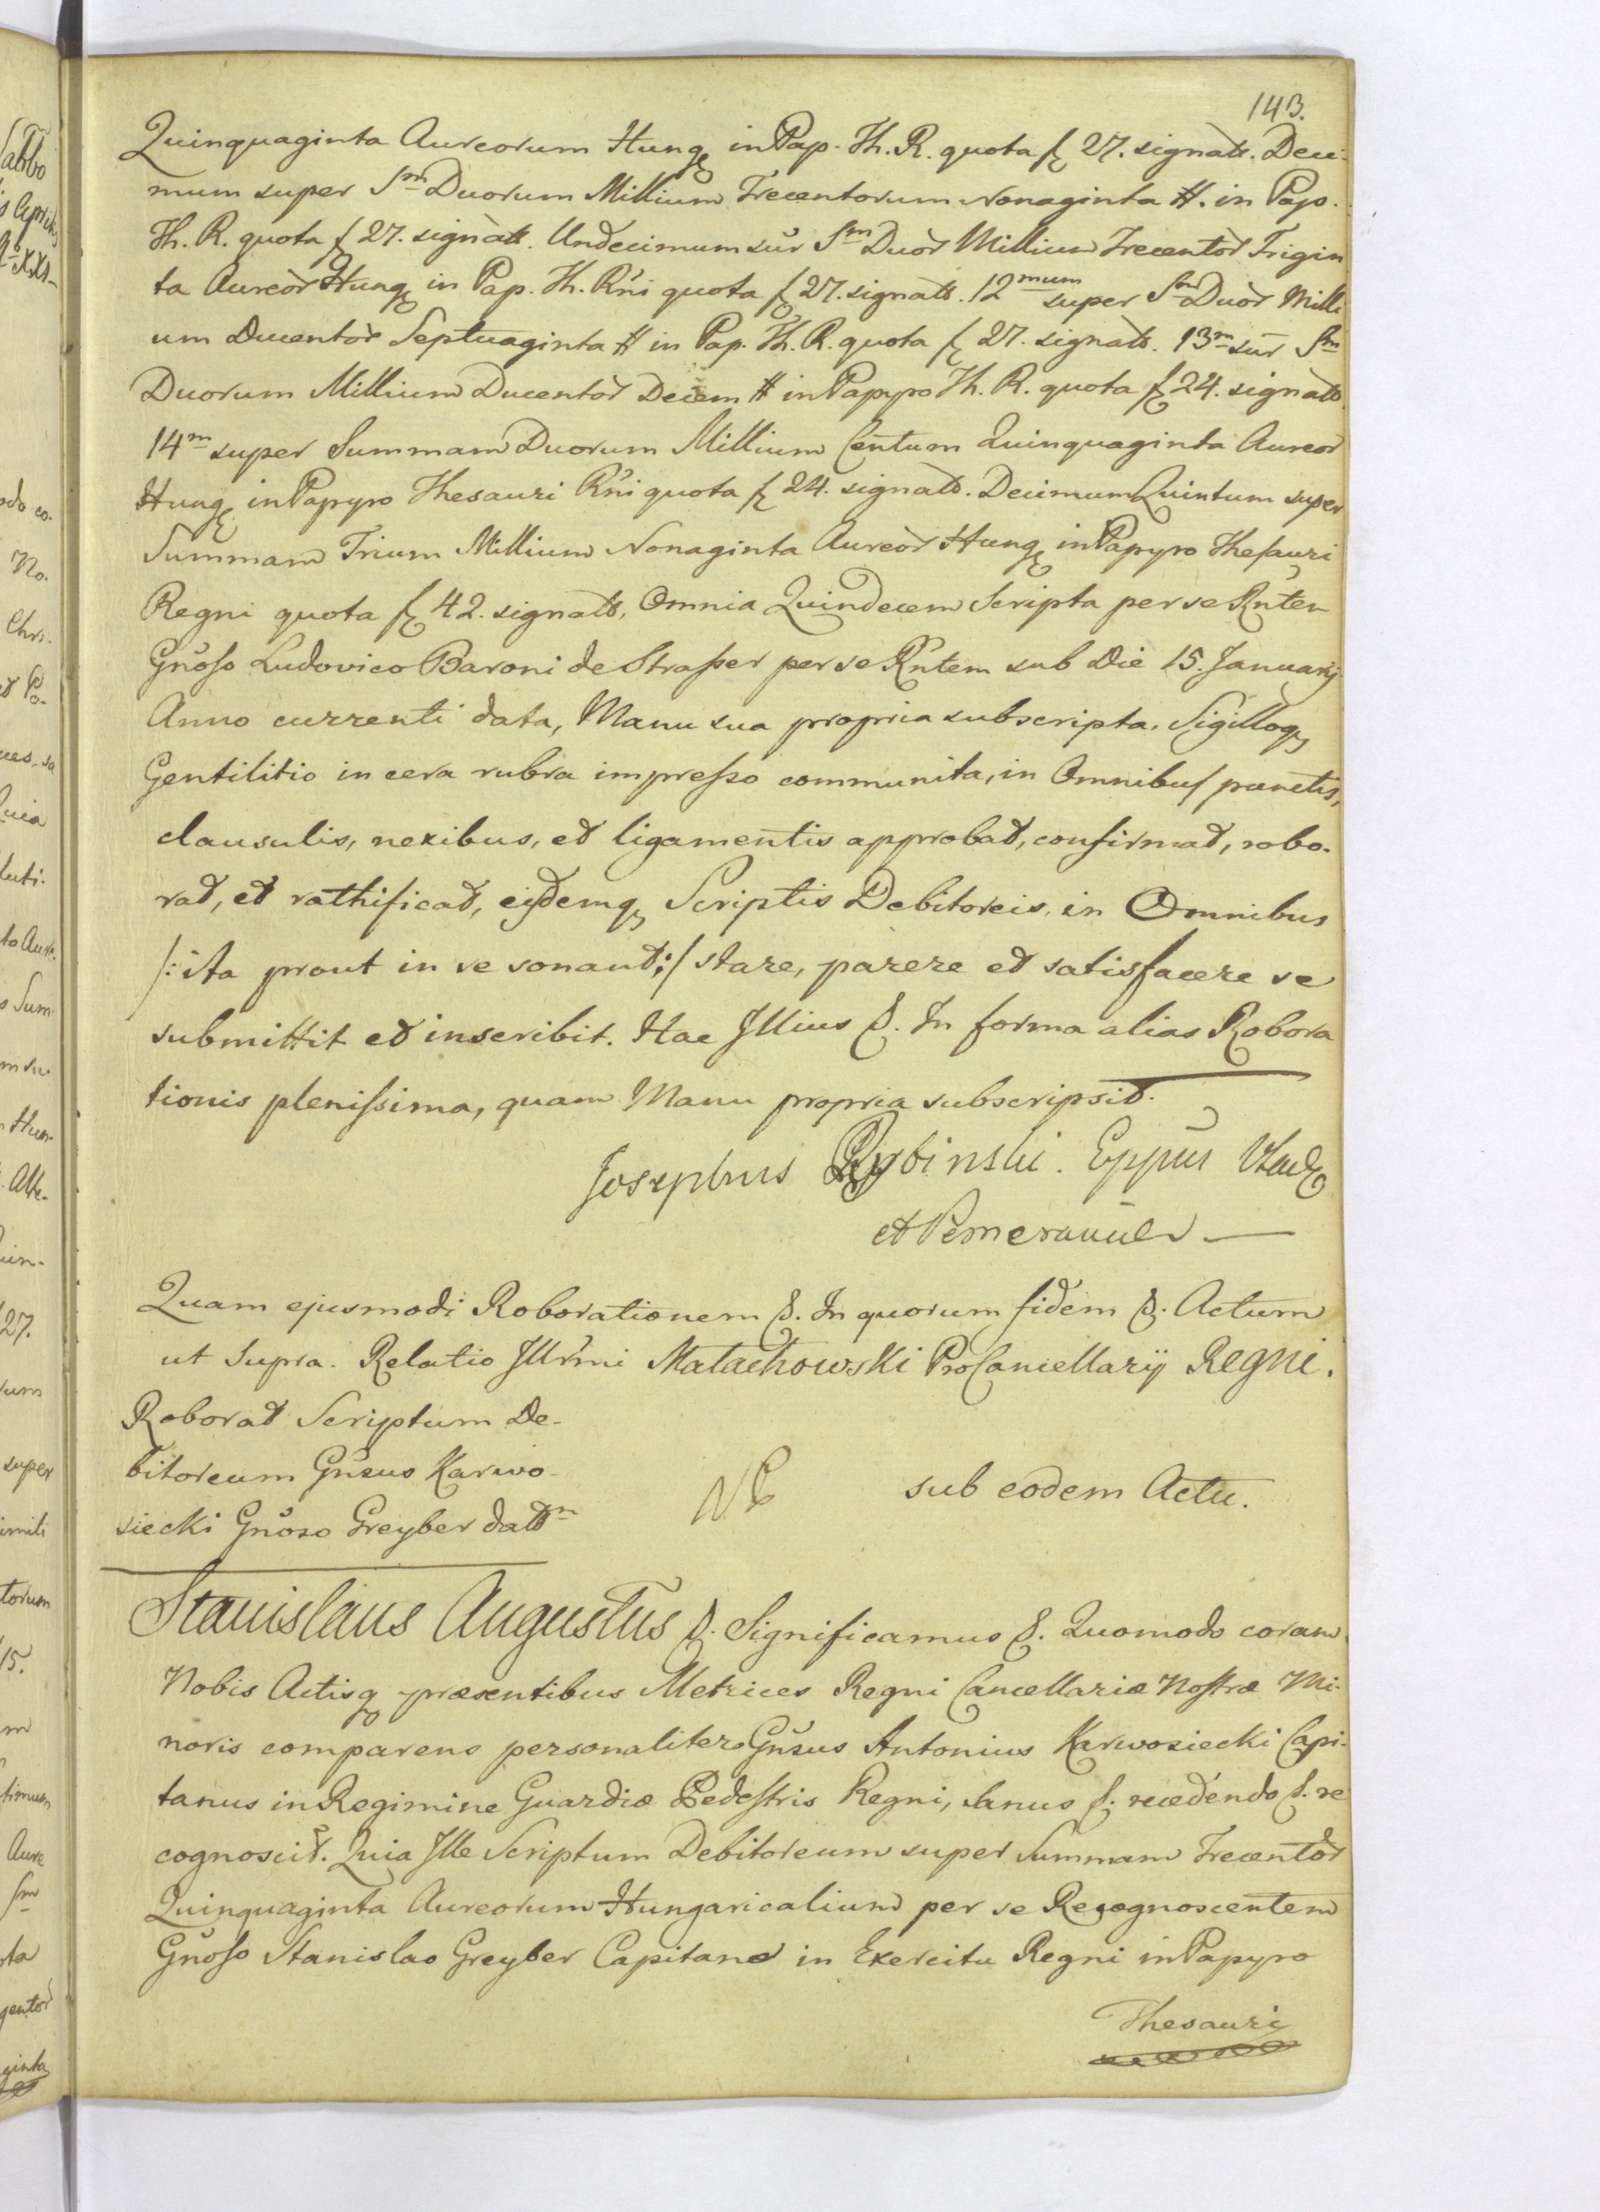 143.
Quinquaginta Aureorum Hung in Pap. Th. R. quota f 27. signats. Deci-
mum super Sm Duorum Millium Trecentorum Nonaginta #. in Pap.
Th. R. quota f 27. signats. Undecimum sur Sm Duor Millium Trecentor Trigin
ta Aureor Hung in Pap. Th. Rni quota f 27. signats. 12mum super Sm Duor Milli
um Ducentor Septuaginta # in Pap. Th. R. quota f 27. signats. 13m sur Sm
Duorum Millium Ducentor Decem # in Papyro Th. R. quota f 24. signats
14m super Summam Duorum Millium Centum Quinquaginta Aureor
Hung in Papyro Thesauri Rni quota f 24. signats. Decimum Quintum super
Summam Trium Millium Nonaginta Aureor Hung in Papyro Thesauri
Regni quota f 42. signats, Omnia Quindecem Scripta per se Rnten
Gnoso Ludovico Baroni de Strasser per se Rntem sub Die 15. Januarij
Anno currenti data, Manu sua propria subscripta, Sigilloq
Gentilitio in cera rubra impresso communita, in Omnibus punctis,
clausulis, nexibus, et ligamentis approbat, confirmat, robo-
rat, et rathificat, eisdemq Scriptis Debitoreis, in Omnibus
/: ita prout in se sonant :/ stare, parere et satisfacere se
submittit et inscribit. Hac Illius &. In forma alias Robora
tionis plenissima, quam Manu propria subscripsit.
Josephus Rybinski. Eppus Vlad
et Pomeraniæ
Quam ejusmodi Roborationem &. In quorum fidem &. Actum
ut Supra. Relatio Illrmi Małachowski ProCancellarij Regni.
Roborat Scriptum De-
bitoreum Gnsus Karwo-
siecki Gnoso Greyber dattm
sub eodem Actu.
Stanislaus Augustus &. Significamus &. Quomodo coram
Nobis Actisq præsentibus Metrices Regni Cancellariæ Nostræ Mi-
noris comparens personaliter Gnsus Antonius Karwosiecki Capi-
tanus in Regimine Guardiæ Pedestris Regni, Sanus &. recedendo &. re
cognoscit. Quia Ille Scriptum Debitoreum super Summam Trecentor
Quinquaginta Aureorum Hungaricalium per se Recognoscentem
Gnoso Stanislao Greyber Capitano in Exercitu Regni in Papyro
Thesauri